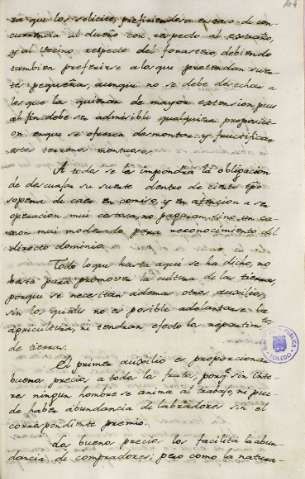 ra que los solicite, prefiriendose en caso de con-
currencia al dueño con respecto al extraño,
y al vecino respecto del forastero, debiendo
tambien preferirse a los que pretendan suer-
te pequeña, aunque no se debe desechar a
los que la quieran de mayor extension, pues
al fin debe ser admisible qualquiera proposi-
on en que se ofrezca desmontar, y fructificar
estos terrenos montuosos.
A todos se les impondria la obligacion
de descuajar su suerte dentro de cierto tpo
sopena de caer en comiso, y en atencion a ser
operacion mui costosa, no pagarian sino un ca-
non mui moderado para reconocimiento del
directo dominio.
Todo lo que hasta aqui se ha dicho, no
basta para promover la cultura de las tierras,
porque se necesitan ademas otros auxilios,
sin los quales no es posible adelantar la
agricultura, ni tendrian efecto los repartim.tos
de tierras.
El primer auxilio es proporcionar
buenos precios a todos los frutos, porq.e sin inte-
res ningun hombre se anima al trabajo, ni pue-
de haber abundancia de labradores sin el
correspondiente premio.
Los buenos precios los facilita la abun-
dancia de compradores, pero como la natura-
TOLEDO